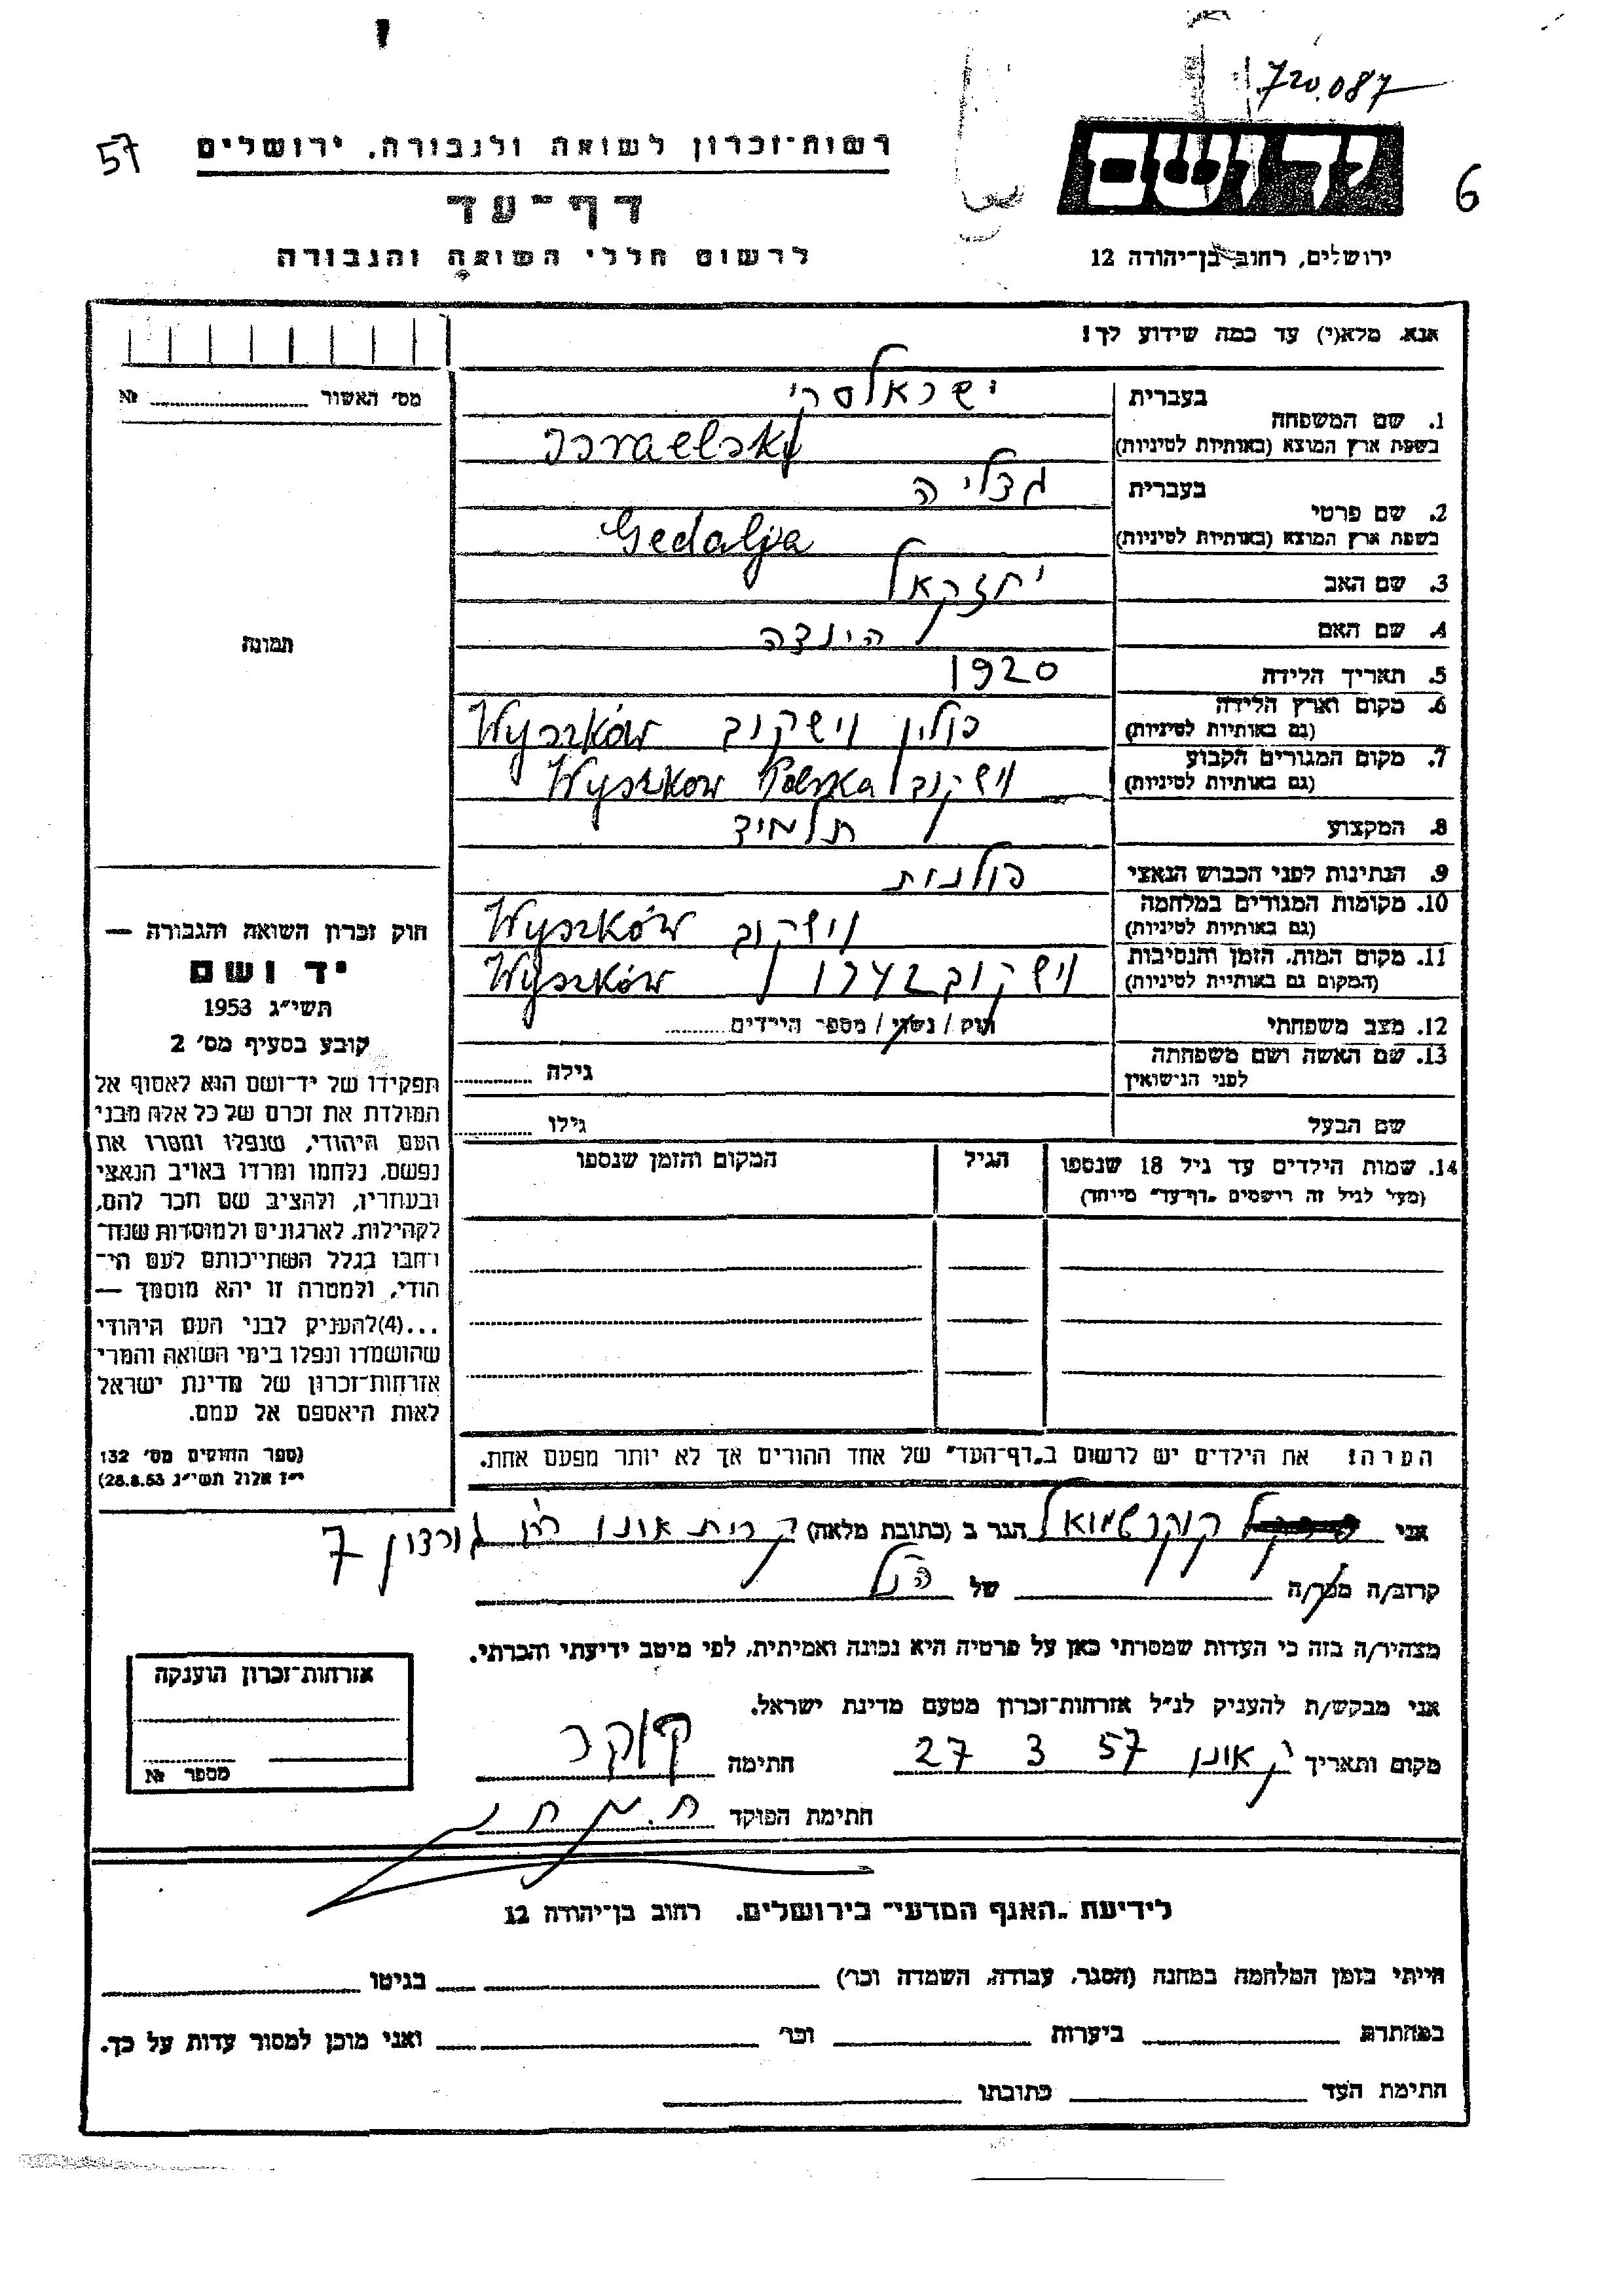 720.087
57
רשות-זכרון לשואה ולגבורה, ירושלים
יד ושם
6
דף-עד
לרשום חללי השואה והגבורה
ירושלים, רחוב בן-יהודה 12
אנא, מלא(י) עד כמה שידוע לך!
מס׳ האשור ........ №
1. שם המשפחה
בעברית
ישראלסקי
בשפת ארץ המוצא (באותיות לטיניות)
Israelski
2. שם פרטי
בעברית
גדליה
בשפת ארץ המוצא (באותיות לטיניות)
Gedalja
3. שם האב
יחזקאל
4. שם האם
הינדה
תמונה
5. תאריך הלידה
1920
6. מקום וארץ הלידה
(גם באותיות לטיניות)
פולין וישקוב Wyszków
7. מקום המגורים הקבוע
(גם באותיות לטיניות)
וישקוב Wyszkow Polska
8. המקצוע
תלמיד
9. הנתינות לפני הכבוש הנאצי
פולנית
10. מקומות המגורים במלחמה
(גם באותיות לטיניות)
וישקוב Wyszków
11. מקום המות, הזמן והנסיבות
(המקום גם באותיות לטיניות)
וישקוב 1942 Wyszków
12. מצב משפחתי
רוק / נשוי / מספר הילדים ........
13. שם האשה ושם משפחתה
לפני הנישואין
גילה ........
שם הבעל
גילו ........
14. שמות הילדים עד גיל 18 שנספו
(מעל לגיל זה רושמים „דף-עד״ מייוחד)
הגיל
המקום והזמן שנספו
הערה: את הילדים יש לרשום ב„דף-העד״ של אחד ההורים אך לא יותר מפעם אחת.
חוק זכרון השואה והגבורה —
יד ושם
תשי״ג 1953
קובע בסעיף מס׳ 2
תפקידו של יד-ושם הוא לאסוף אל
המולדת את זכרם של כל אלה מבני
העם היהודי, שנפלו ומסרו את
נפשם, נלחמו ומרדו באויב הנאצי
ובעוזריו, ולהציב שם וזכר להם,
לקהילות, לארגונים ולמוסדות שנח-
רבו בגלל השתייכותם לעם הי-
הודי, ולמטרה זו יהא מוסמך —
...(4) להעניק לבני העם היהודי
שהושמדו ונפלו בימי השואה והמרי
אזרחות-זכרון של מדינת ישראל
לאות היאספם אל עמם.
(ספר החוקים מס׳ 132
י״ז אלול תשי״ג 28.8.53)
אני קוקר שמואל הגר ב (כתובת מלאה) קרית אונו רח׳ גורדון 7
קרוב/ה מכר/ה של הנ״ל
מצהיר/ה בזה כי העדות שמסרתי כאן על פרטיה היא נכונה ואמיתית, לפי מיטב ידיעתי והכרתי.
אני מבקש/ת להעניק לנ״ל אזרחות-זכרון מטעם מדינת ישראל.
מקום ותאריך ק אונו 27 3 57 חתימה קוקר
חתימת הפוקד
אזרחות-זכרון הוענקה
מספר №
לידיעת „האגף המדעי״ בירושלים. רחוב בן-יהודה 12
הייתי בזמן המלחמה במחנה (הסגר, עבודה, השמדה וכו׳) בגיטו
במחתרת ביערות וכו׳ ואני מוכן למסור עדות על כך.
חתימת העד כתובתו